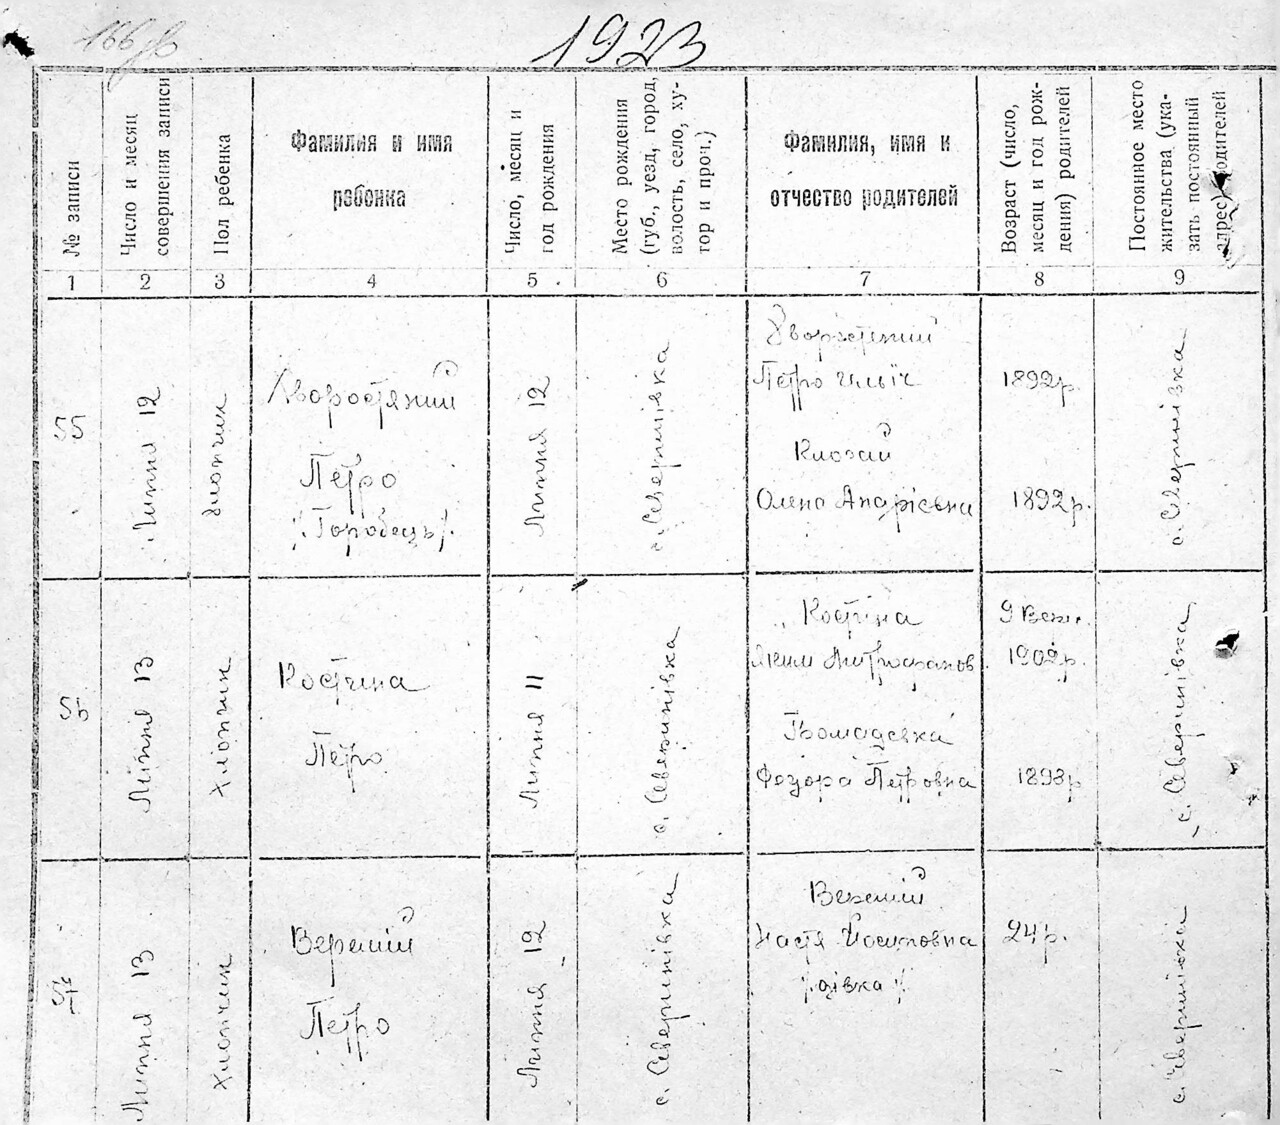 1923
№ записи
Число и месяц
совершения записи
Пол ребенка
Фамилия и имя
ребенка
Число, месяц и
год рождения
Место рождения
(губ., уезд, город,
волость, село, ху-
тор и проч.)
Фамилия, имя и
отчество родителей
Возраст (число,
месяц и год рож-
дения) родителей
Постоянное место
жительства (ука-
зать постоянный
адрес) родителей
1
2
3
4
5
6
7
8
9
55
Липня 12
Хлопчик
Хворостяний
Петро
/Горобець/
Липня 12
с. Северинівка
Хворостяний
Петро Ільїч
Олена
1892р.
1892р.
с. Северинівка
55
Липня 13
Хлопчик
Костина
Петро
Липня 11
с. Северинівка
Костина
Яким Митрофанов
Федора Петровна
9
1902р.
1898р
с. Северинівка
Липня 13
Хлопчик
Петро
Липня 12
с. Северинівка
Настя Йосиповна
/дівка/
24р.
с. Северинівка